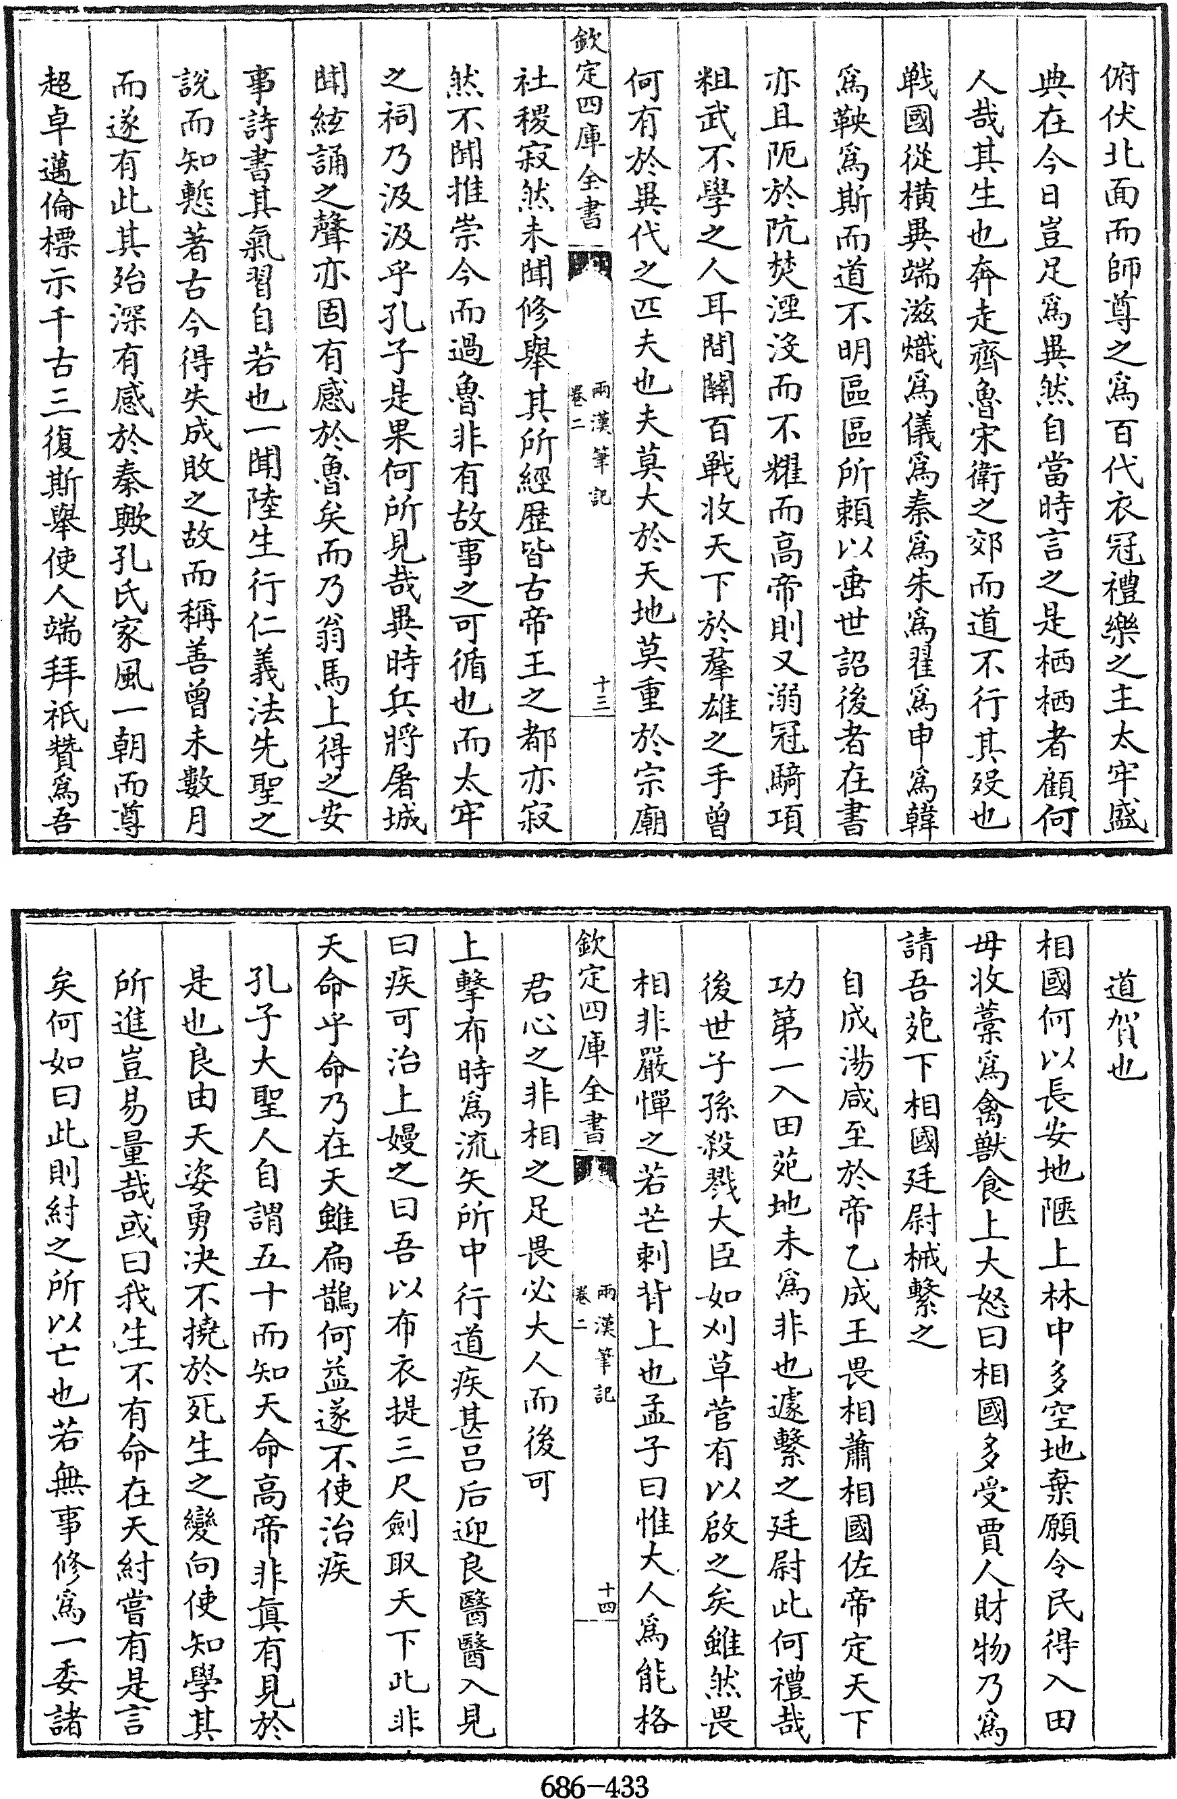 俯伏北面而師尊之爲百代衣冠禮樂之主太牢盛
典在今日豈足爲異然自當時言之是栖栖者顧何
人哉其生也奔走齊魯宋衛之郊而道不行其歿也
戰國從横異端滋熾爲儀爲秦爲朱爲翟爲申爲韓
爲鞅爲斯而道不明區區所頼以垂世詔後者在書
亦且阨於阬焚湮沒而不耀而高帝則又溺冠騎項
粗武不學之人耳間關百戰收天下於羣雄之手曾
何有於異代之匹夫也夫莫大於天地莫重於宗廟
欽定四庫全書
兩漢筆記
卷二
十三
社稷寂然未聞修舉其所經歴皆古帝王之都亦寂
然不聞推崇今而過魯非有故事之可循也而太牢
之祠乃汲汲乎孔子是果何所見哉異時兵將屠城
聞絃誦之聲亦固有感於魯矣而乃翁馬上得之安
事詩書其氣習自若也一聞陸生行仁義法先聖之
說而知慙著古今得失成敗之故而稱善曾未數月
而遂有此其殆深有感於秦歟孔氏家風一朝而尊
超卓邁倫標示千古三復斯舉使人端拜祇贊爲吾
道賀也
相國何以長安地陿上林中多空地棄願令民得入田
毋收藁爲禽獸食上大怒曰相國多受賈人財物乃爲
請吾苑下相國廷尉械繫之
自成湯咸至於帝乙成王畏相蕭相國佐帝定天下
功第一入田苑地未爲非也遽繫之廷尉此何禮哉
後世子孫殺戮大臣如刈草菅有以啟之矣雖然畏
相非嚴憚之若芒刺背上也孟子曰惟大人爲能格
欽定四庫全書
兩漢筆記
卷二
十四
君心之非相之足畏必大人而後可
上擊布時爲流矢所中行道疾甚吕后迎良醫醫入見
曰疾可治上嫚之曰吾以布衣提三尺劍取天下此非
天命乎命乃在天雖扁鵲何益遂不使治疾
孔子大聖人自謂五十而知天命高帝非真有見於
是也良由天姿勇决不撓於死生之變向使知學其
所進豈易量哉或曰我生不有命在天紂嘗有是言
矣何如曰此則紂之所以亡也若無事修爲一委諸
686-433